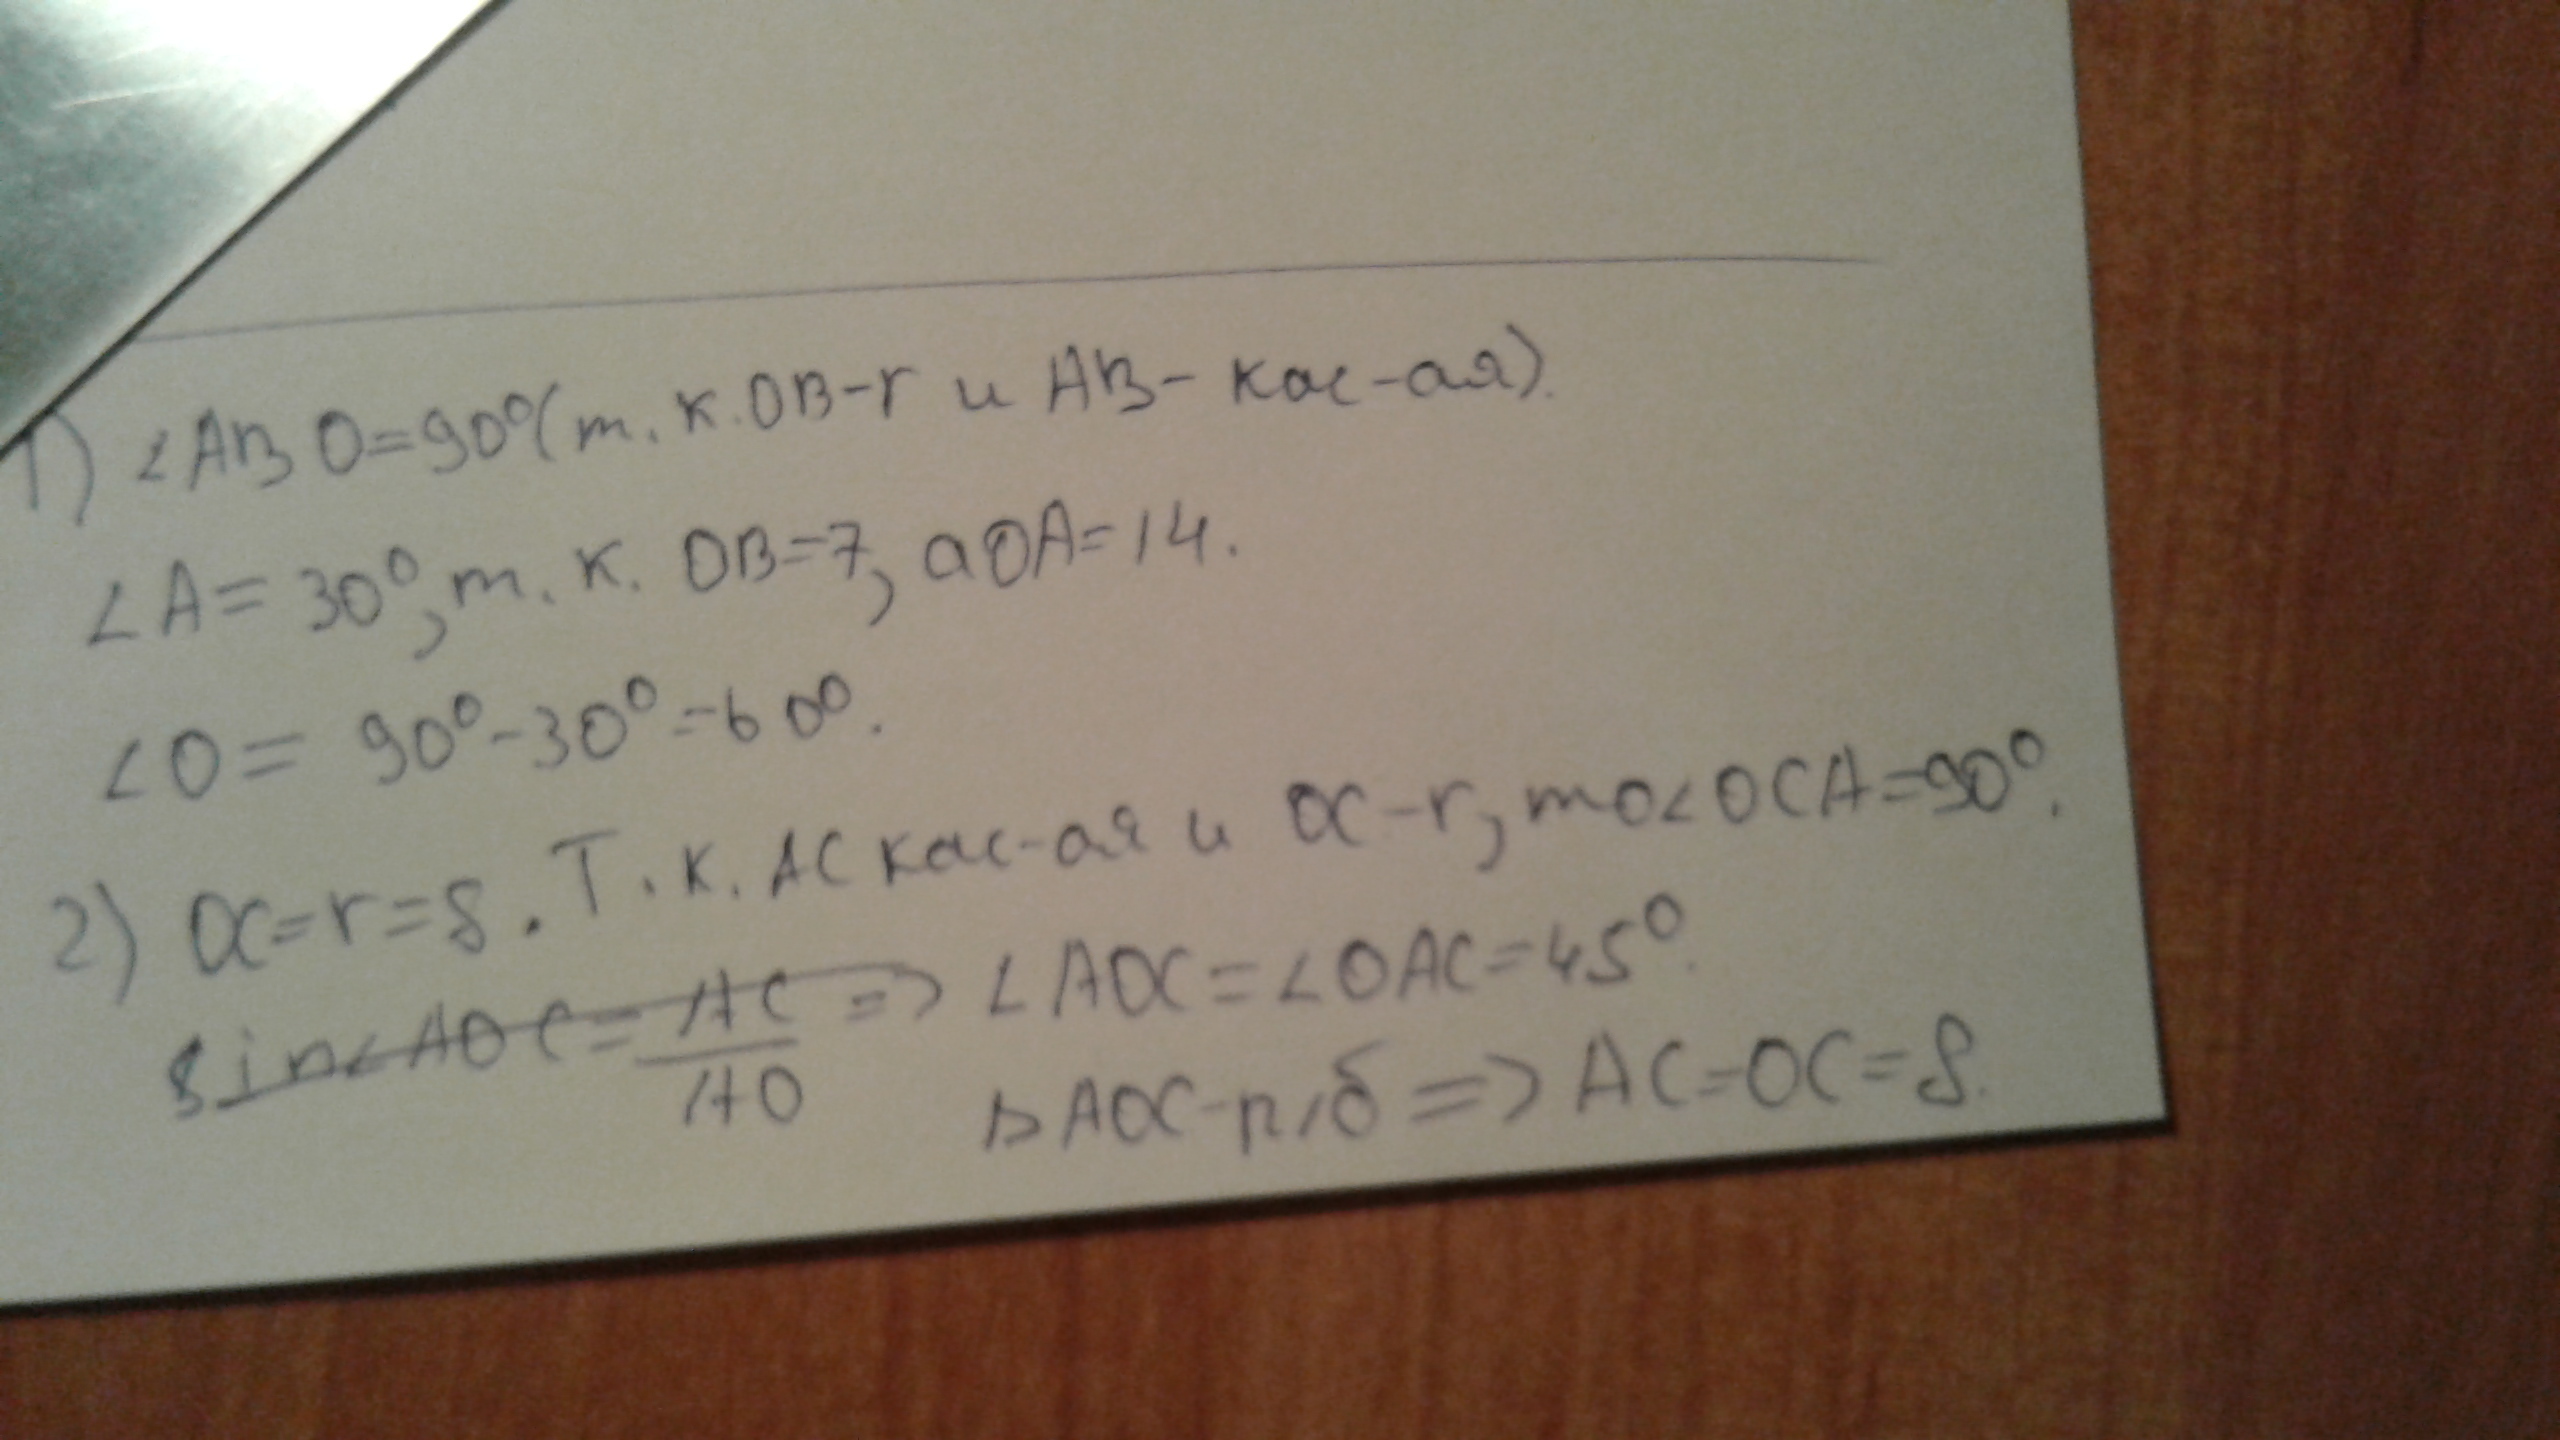 1) ∠ABO=90°(т.к.OB-r и AB- кас-ая).
∠A=30°,т.к. OB=7, аOA=14.
∠O= 90°-30°=60°.
2) OC=r=8. Т.к. AC кас-ая и OC-r, то∠OCA=90°.
Sin∠AOC=AC/AO => ∠AOC=∠OAC=45°.
▷AOC-р/б => AC=OC=8.